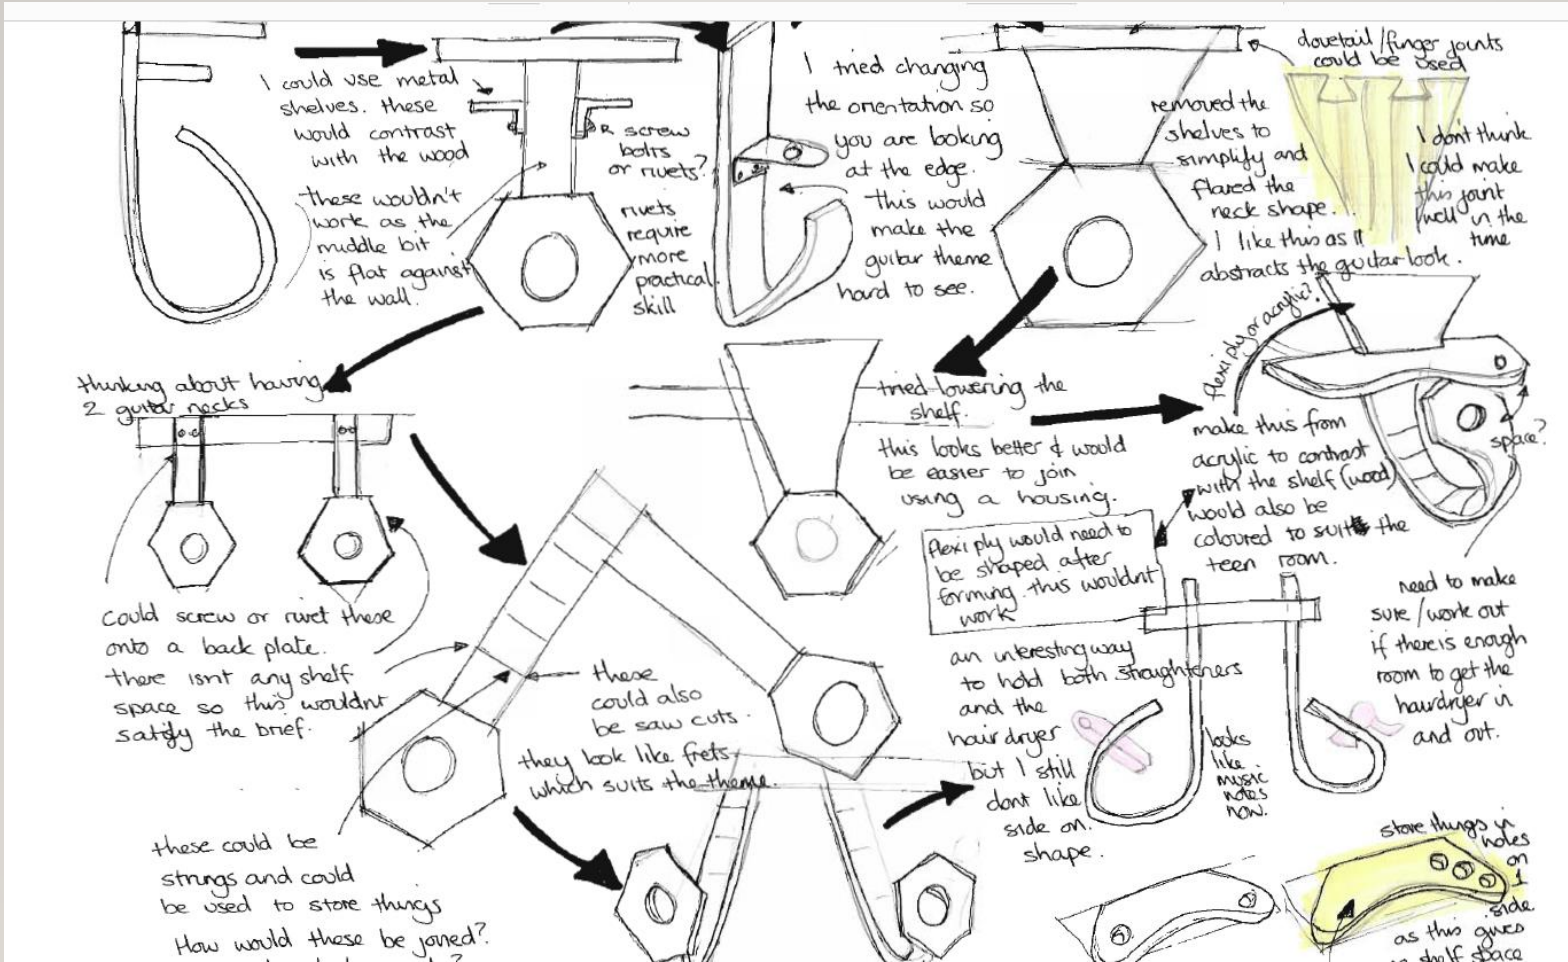 I could use metal
shelves. these
would contrast
with the wood
these wouldn't
work as the
middle bit
is flat against
the wall.
screw
bolts
or rivets?
rivets
require
more
practical
skill
I tried changing
the orientation so
you are looking
at the edge.
This would
make the
guitar theme
hard to see.
removed the
shelves to
simplify and
flared the
neck shape.
I like this as it
abstracts the guitar look.
dovetail/finger joints
could be used
I don't think
I could make
this joint
well in the
time
thinking about having
2 guitar necks
Could screw or rivet these
onto a back plate.
there isnt any shelf
space so this wouldnt
satisfy the brief.
tried lowering the
shelf.
this looks better & would
be easier to join
using a housing.
flexi ply or acrylic?
make this from
acrylic to contrast
with the shelf (wood)
would also be
coloured to suit the
teen room.
space?
flexi ply would need to
be shaped after
forming. this wouldnt
work
need to make
sure/work out
if there is enough
room to get the
hairdryer in
and out.
these
could also
be saw cuts.
they look like frets
which suits the theme.
an interesting way
to hold both straighteners
and the
hairdryer
but I still
dont like
side on
shape.
looks
like
music
notes
now.
these could be
strings and could
be used to store things
How would these be joined?
store things in
holes
on
1
side
as this gives
shelf space